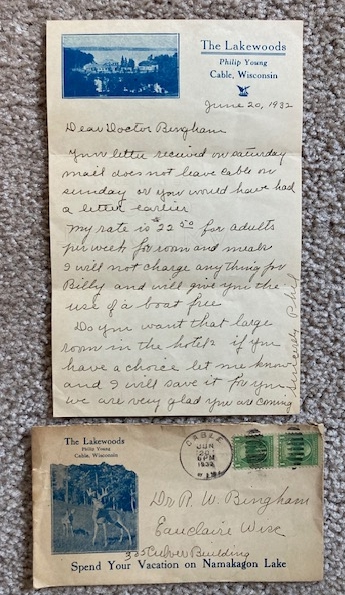 The Lakewoods
Philip Young
Cable, Wisconsin
June 20, 1932
Dear Doctor Bingham
Your letter received on saturday
mail does not leave Cable on
sunday or you would have had
a letter earlier
my rate is $22 50 for adults
per week for room and meals
I will not charge anything for
Billy and will give you the
use of a boat free
Do you want that large
room in the hotel? if you
have a choice let me know
and I will save it for you
we are very glad you are coming
Sincerely Phil
The Lakewoods
Philip Young
Cable, Wisconsin
CABLE
JUN
20
6 PM
1932
WIS
Dr R. W. Bingham
Eauclaire Wisc
305 Culver Building
Spend Your Vacation on Namakagon Lake